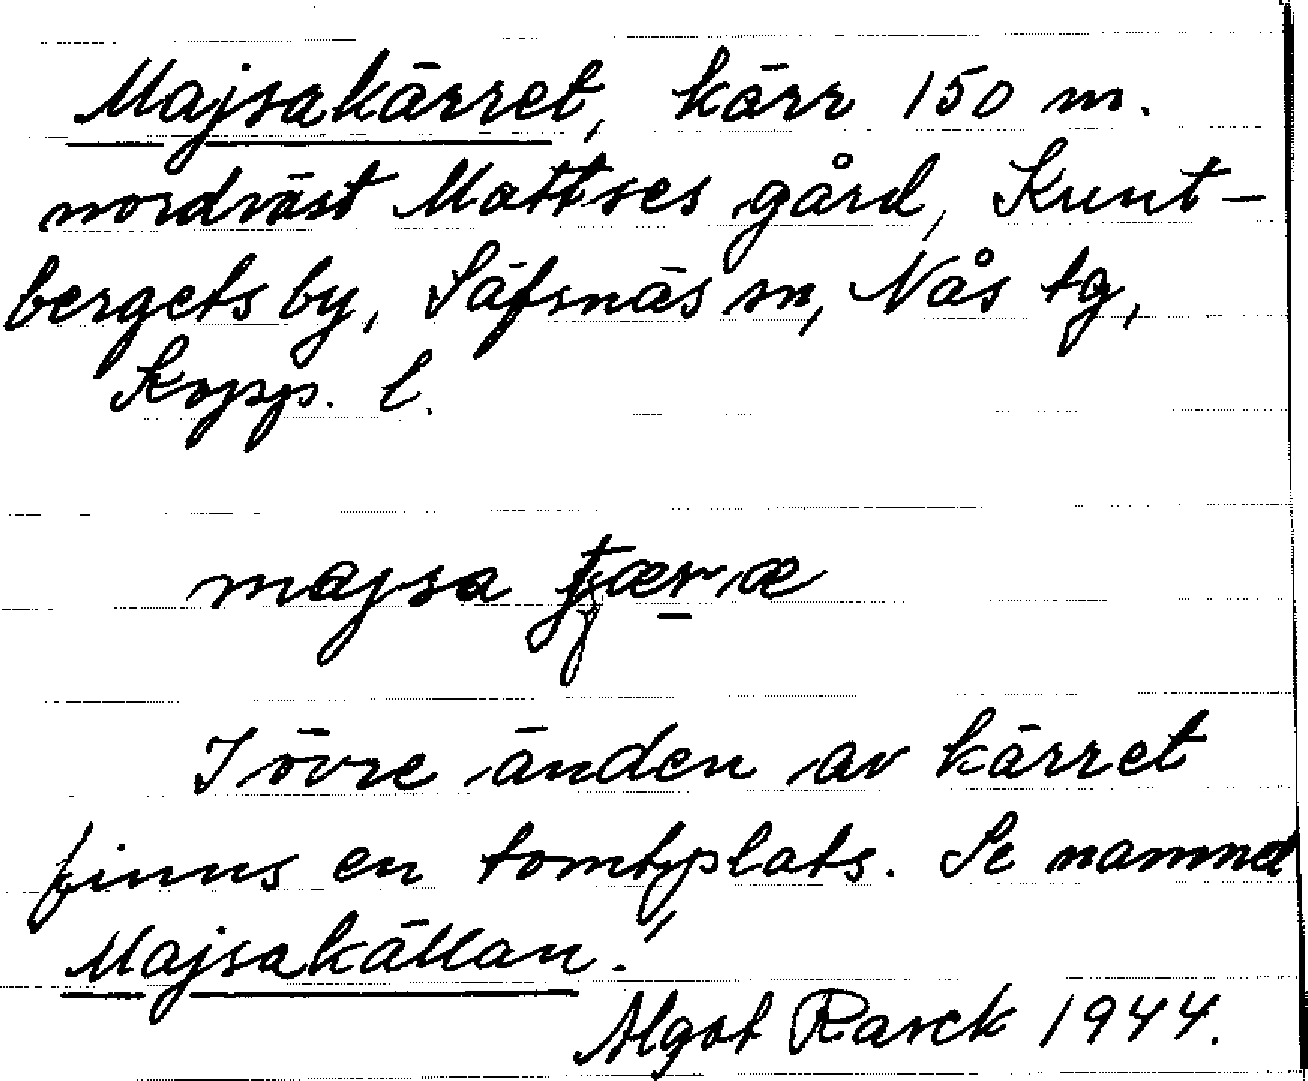 Majsakärret, kärr 150 m.
nordväst Mattses gård, Kunt-
bergets by, Säfsnäs sn, Nås tg,
Kopp. l.
majsa tjæræ
I övre änden av kärret
finns en tomtplats. Se namnet
Majsakällan!
Algot Rarck 1944.